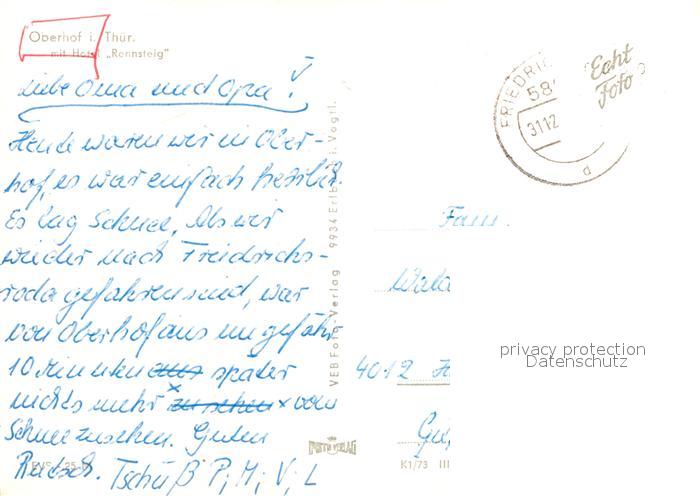 Oberhof i. Thür.
mit Hotel „Rennsteig"
Liebe Oma und Opa!
Heute waren wir in Ober-
hof, es war einfach herrlich.
Es lag Schnee, Als wir
wieder nach Freidrichs-
roda gefahren sind, war
von Oberhof aus ungefähr
10 Minuten aus später
nichts mehr zu sehen vom
Schnee zu sehen. Guten
Rutsch. Tschüß P; M; V; L
VEB Foto-Verlag 9934 Erlbach i. Vogtl.
FRIEDRIC
58
31.12
a
Echt
Foto
Fam.
4012 H
privacy protection
Datenschutz
FOTO VERLAG
K1/73 III